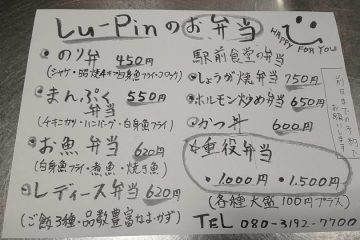 Lu-Pinのお弁当
HAPPY FOR YOU!
のり弁 450円
(シャケ・照焼チキン・白身魚フライ・コロッケ)
まんぷく弁当 550円
(チキンカツ・ハンバーグ・白身魚フライ)
お魚弁当 620円
(白身魚フライ・煮魚・焼き魚)
レディース弁当 620円
(ご飯3種・品数豊富なおかず)
駅前食堂の弁当
しょうが焼弁当 750円
ホルモン炒め弁当 650円
かつ丼 600円
重役弁当
・1000円 ・1,500円
(各種大盛100円プラス)
TEL 080-3192-7700
前日までの予約